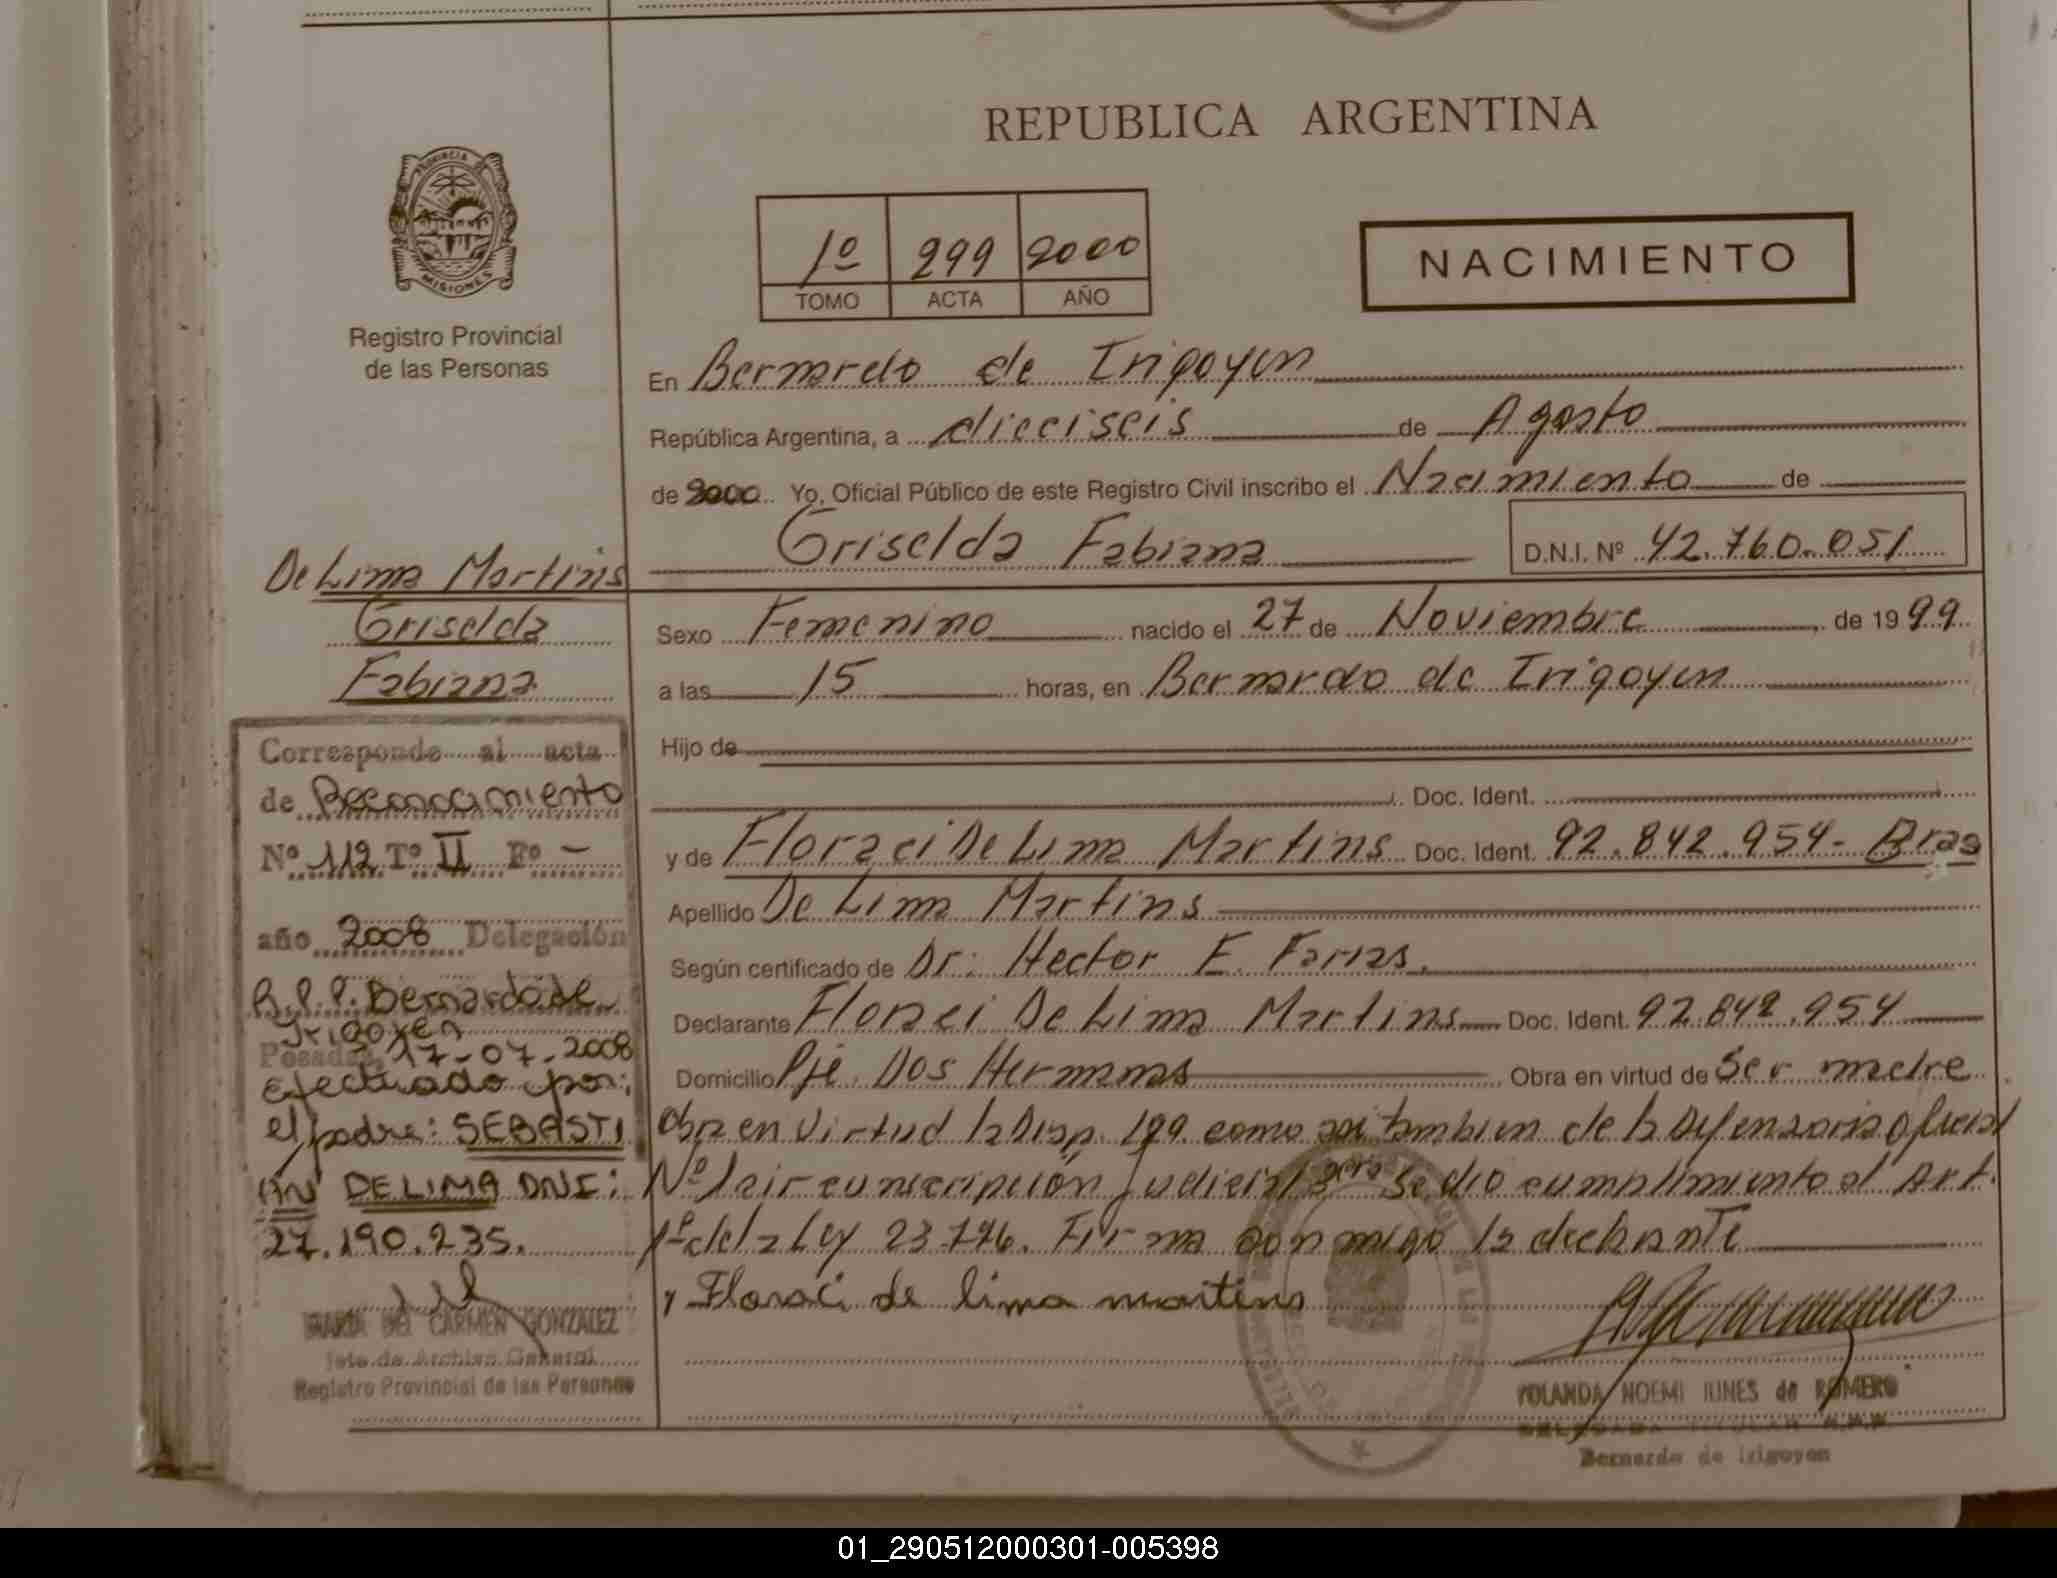 REPUBLICA ARGENTINA
PROVINCIA DE
MISIONES
Registro Provincial
de las Personas
1º 299 2000
TOMO ACTA AÑO
NACIMIENTO
En Bernardo de Irigoyen
República Argentina, a dieciseis de Agosto
de 2000 Yo, Oficial Público de este Registro Civil inscribo el Nacimiento de
Griselda Fabiana D.N.I. Nº 42.760.051
Sexo Femenino nacido el 27 de Noviembre de 1999
a las 15 horas, en Bernardo de Irigoyen
Hijo de
Doc. Ident.
y de Floraci De Lima Martins Doc. Ident. 92.842.954- Bras
Apellido De Lima Martins
Según certificado de Dr: Hector E. Farias.
Declarante Floraci De Lima Martins Doc. Ident. 92.842.954
Domicilio Pje Dos Hermanas Obra en virtud de Ser madre
Obra en virtud la Disp. 199 como asi tambien de la Defensoria oficial
Nº 1 circunscripción Judicial 3era Se dio cumplimiento al Art.
1º de la Ley 23.776. Firma conmigo la declarante
Floraci de lima martins
YOLANDA NOEMI IUNES de ROMERO
DELEGADA TITULAR R.P.P.
Bernardo de Irigoyen
De Lima Martins
Griselda
Fabiana
Corresponde al acta
de Reconocimiento
Nº 112 Tº II Fº -
año 2008 Delegación
R.P.P. Bernardo de
Irigoyen
Posadas, 17-07-2008
efectuado por:
el padre: SEBASTI
AN DE LIMA DNI:
27.190.235.
MARIA DEL CARMEN GONZALEZ
Jefe de Archivo General
Registro Provincial de las Personas
01_290512000301-005398